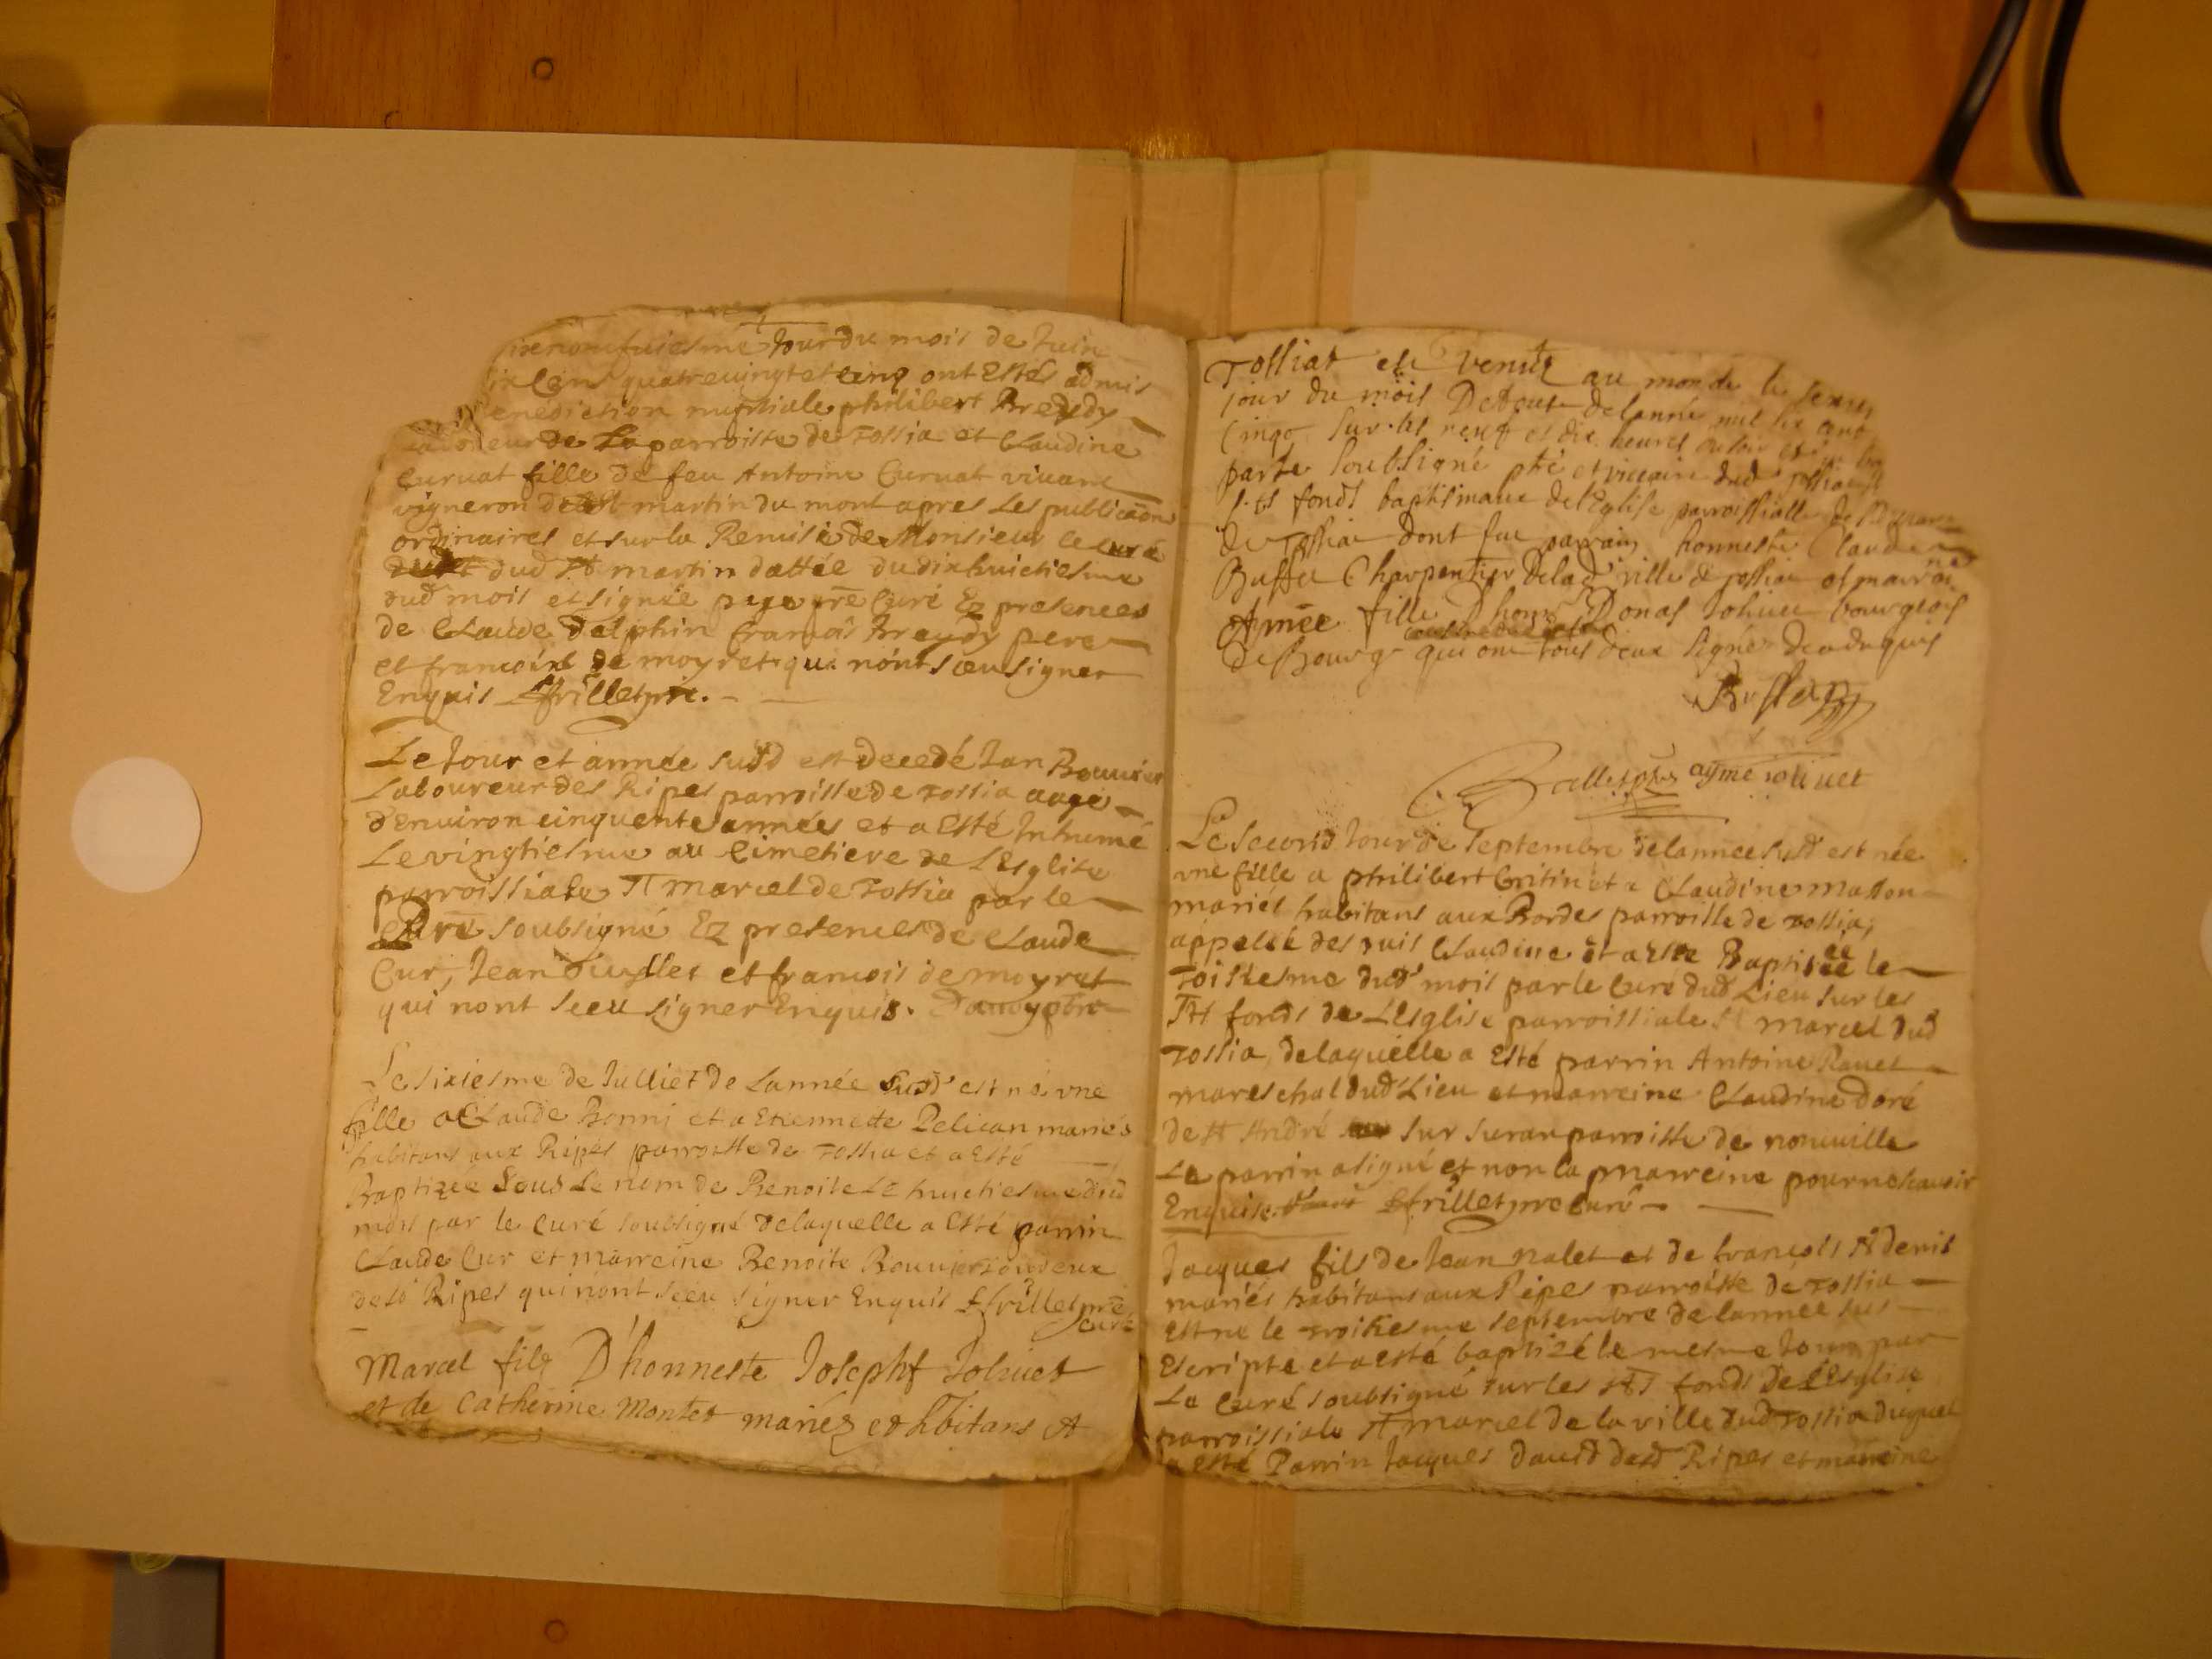 jour du mois de Juin
quatrevingt et cinq ont Estés admis
nuptiale philibert Breydy
de La parroisse de Tossia et Claudine
Curvat fille de feu Antoine Curvat vivant
vigneron de st martin du mont apres Les publicaon
ordinaires et sur la Remise de Monsieur le curé
dud St martin dattée du dixhuictiesme
dud mois et signée Curé Ez presences
de Claude Dalphin francois Breydy pere
et francoint de moyret qui nónt sceu signer
Enquis frillet pre.
Le Jour et année susd est decedé Jan Bouvier
Laboureur des Ripes parroisse de Tossia aagé
d'Environ cinquente années et a Esté Inhumé
Le vingtiesme au Cimetiere de L'Esglise
parroissiale st marcel de Tossia par le
Curé soubsigné Ez presences de Claude
Cur, Jean et francois de moyret
qui nont sceu signer Enquis.
Le sixiesme de Julliet de Lannée Susd est né vne
fille a Claude Bonni et a Etiennette Pelican mariés
habitans aux Ripes parroisse de Tossia et a Esté
Baptizée Sous Le nom de Benoite Le huictiesme dud
mois par le curé soubsigné delaquelle a Esté parrin
Claude Cur et marreine Benoite Bouvier tous deux
desd Ripes qui nont sceu signer Enquis frillet pre
curé
Marcel filz D'honneste Josepht Joliuet
et de Catherine Montet mariéz et hbitans A
Tossiat est venuz au monde le
jour du mois D'Aoust de lanné mil six cent
Cinqe sur les neuf et dix heures du soir et
parte soubsigné ptre et viccaire dud Tossia
sts fonds baptismaux de l'Eglise parroissialle de
de Tossia dont fut parrain honneste Claude
Buffet Charpentier delad ville de Tossia et marrai
ne
Aymée fille D'honte Donat Joliuet bourgeois
de Bourg qui ont tous deux signés de ce requis
Buffet
ayme ioliuet
Le second Jour de Septembre de lannee susd est née
vne fille a philibert Gritin et a Claudine Masson
mariés habitans aux Bordes parroisse de Tossia,
appelée despuis Claudine et a Esté Baptisée le
Troisiesme dud mois par le Curé dud Lieu sur les
Sts fonds de L'Esglise parroissiale st marcel dud
Tossia, delaquelle a Esté parrin Antoine Ravet
mareschal dud Lieu et marreine Claudine doré
de st André sur suran parroisse de nouville
Le parrin a signé et non la marreine pour ne scavoir
Enquise. frillet pre curé
Jacques fils de Jean nalet et de francois st denis
mariés habitans aux Ripes parroisse de Tossia
est ne le troisiesme septembre de lannee sus
Escripte et a esté baptizé le mesme Jour par
Le Curé soubsigné sur les sts fonds de L'Esglise
parroissiale st marcel de la ville dud Tossia duquel
a esté Parrin Jacques dauid desd Ripes et marreine